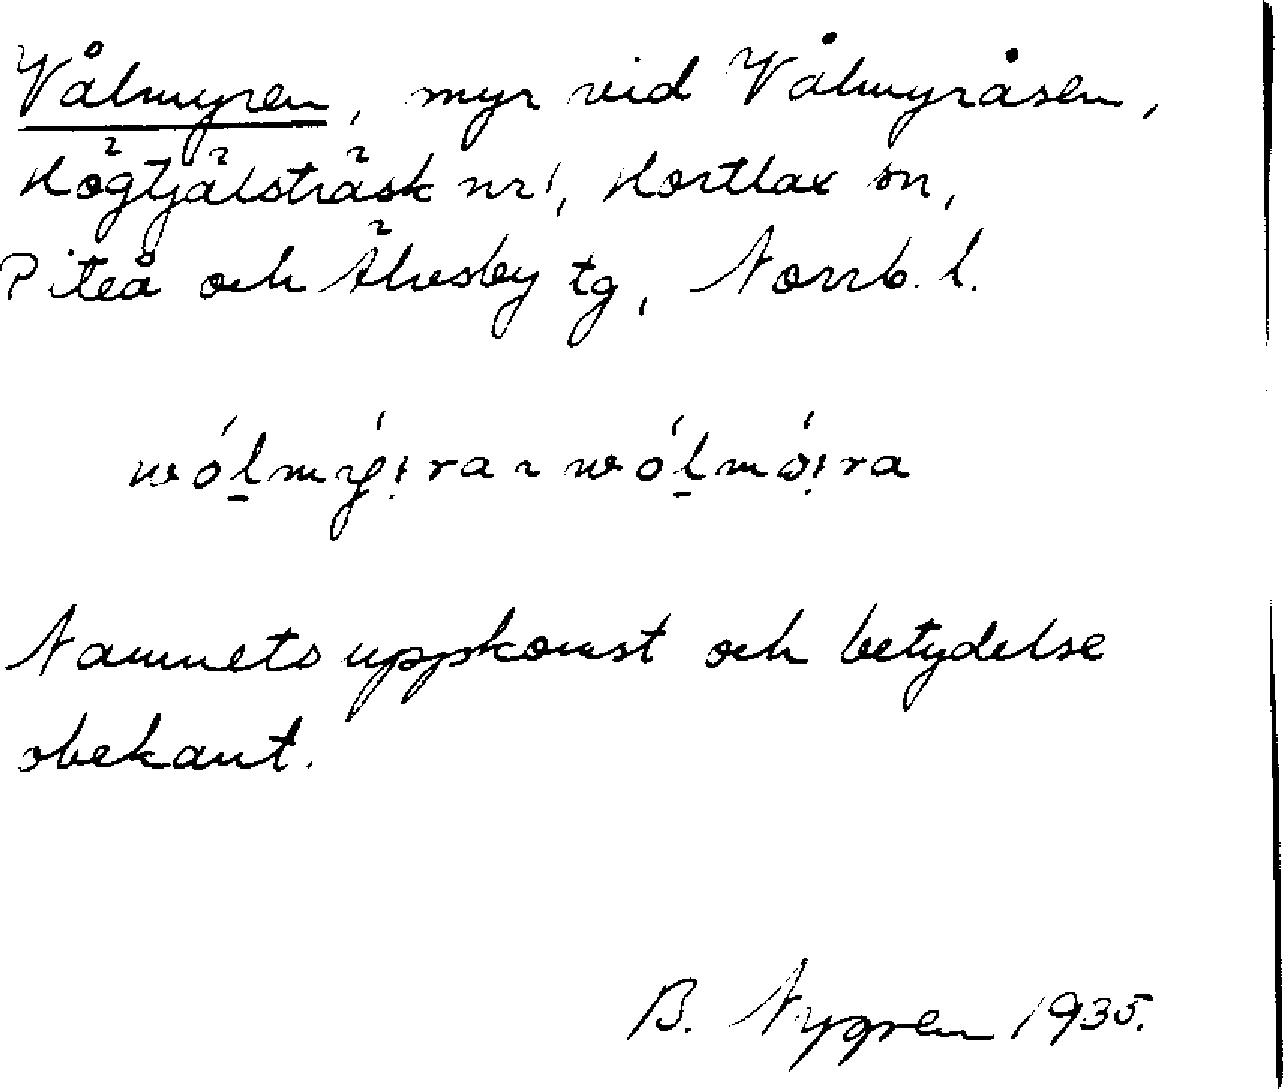 Vålmyren, myr vid Vålmyråsen,
Högtjälsträsk nr 1, Hortlax sn,
Piteå och Älvsby tg, Norrb. l.
wólmýi̩ra ~ wólmói̩ra
Namnets uppkomst och betydelse
obekant.
B. Nygren 1935.